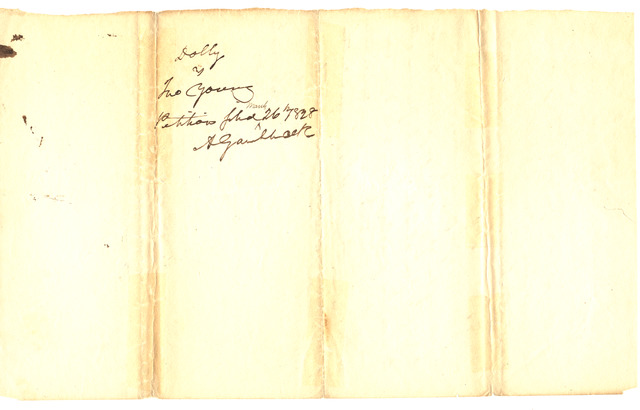 Dolly
v
Jno Young
Petition filed March 26th 1828
A Gamble clk